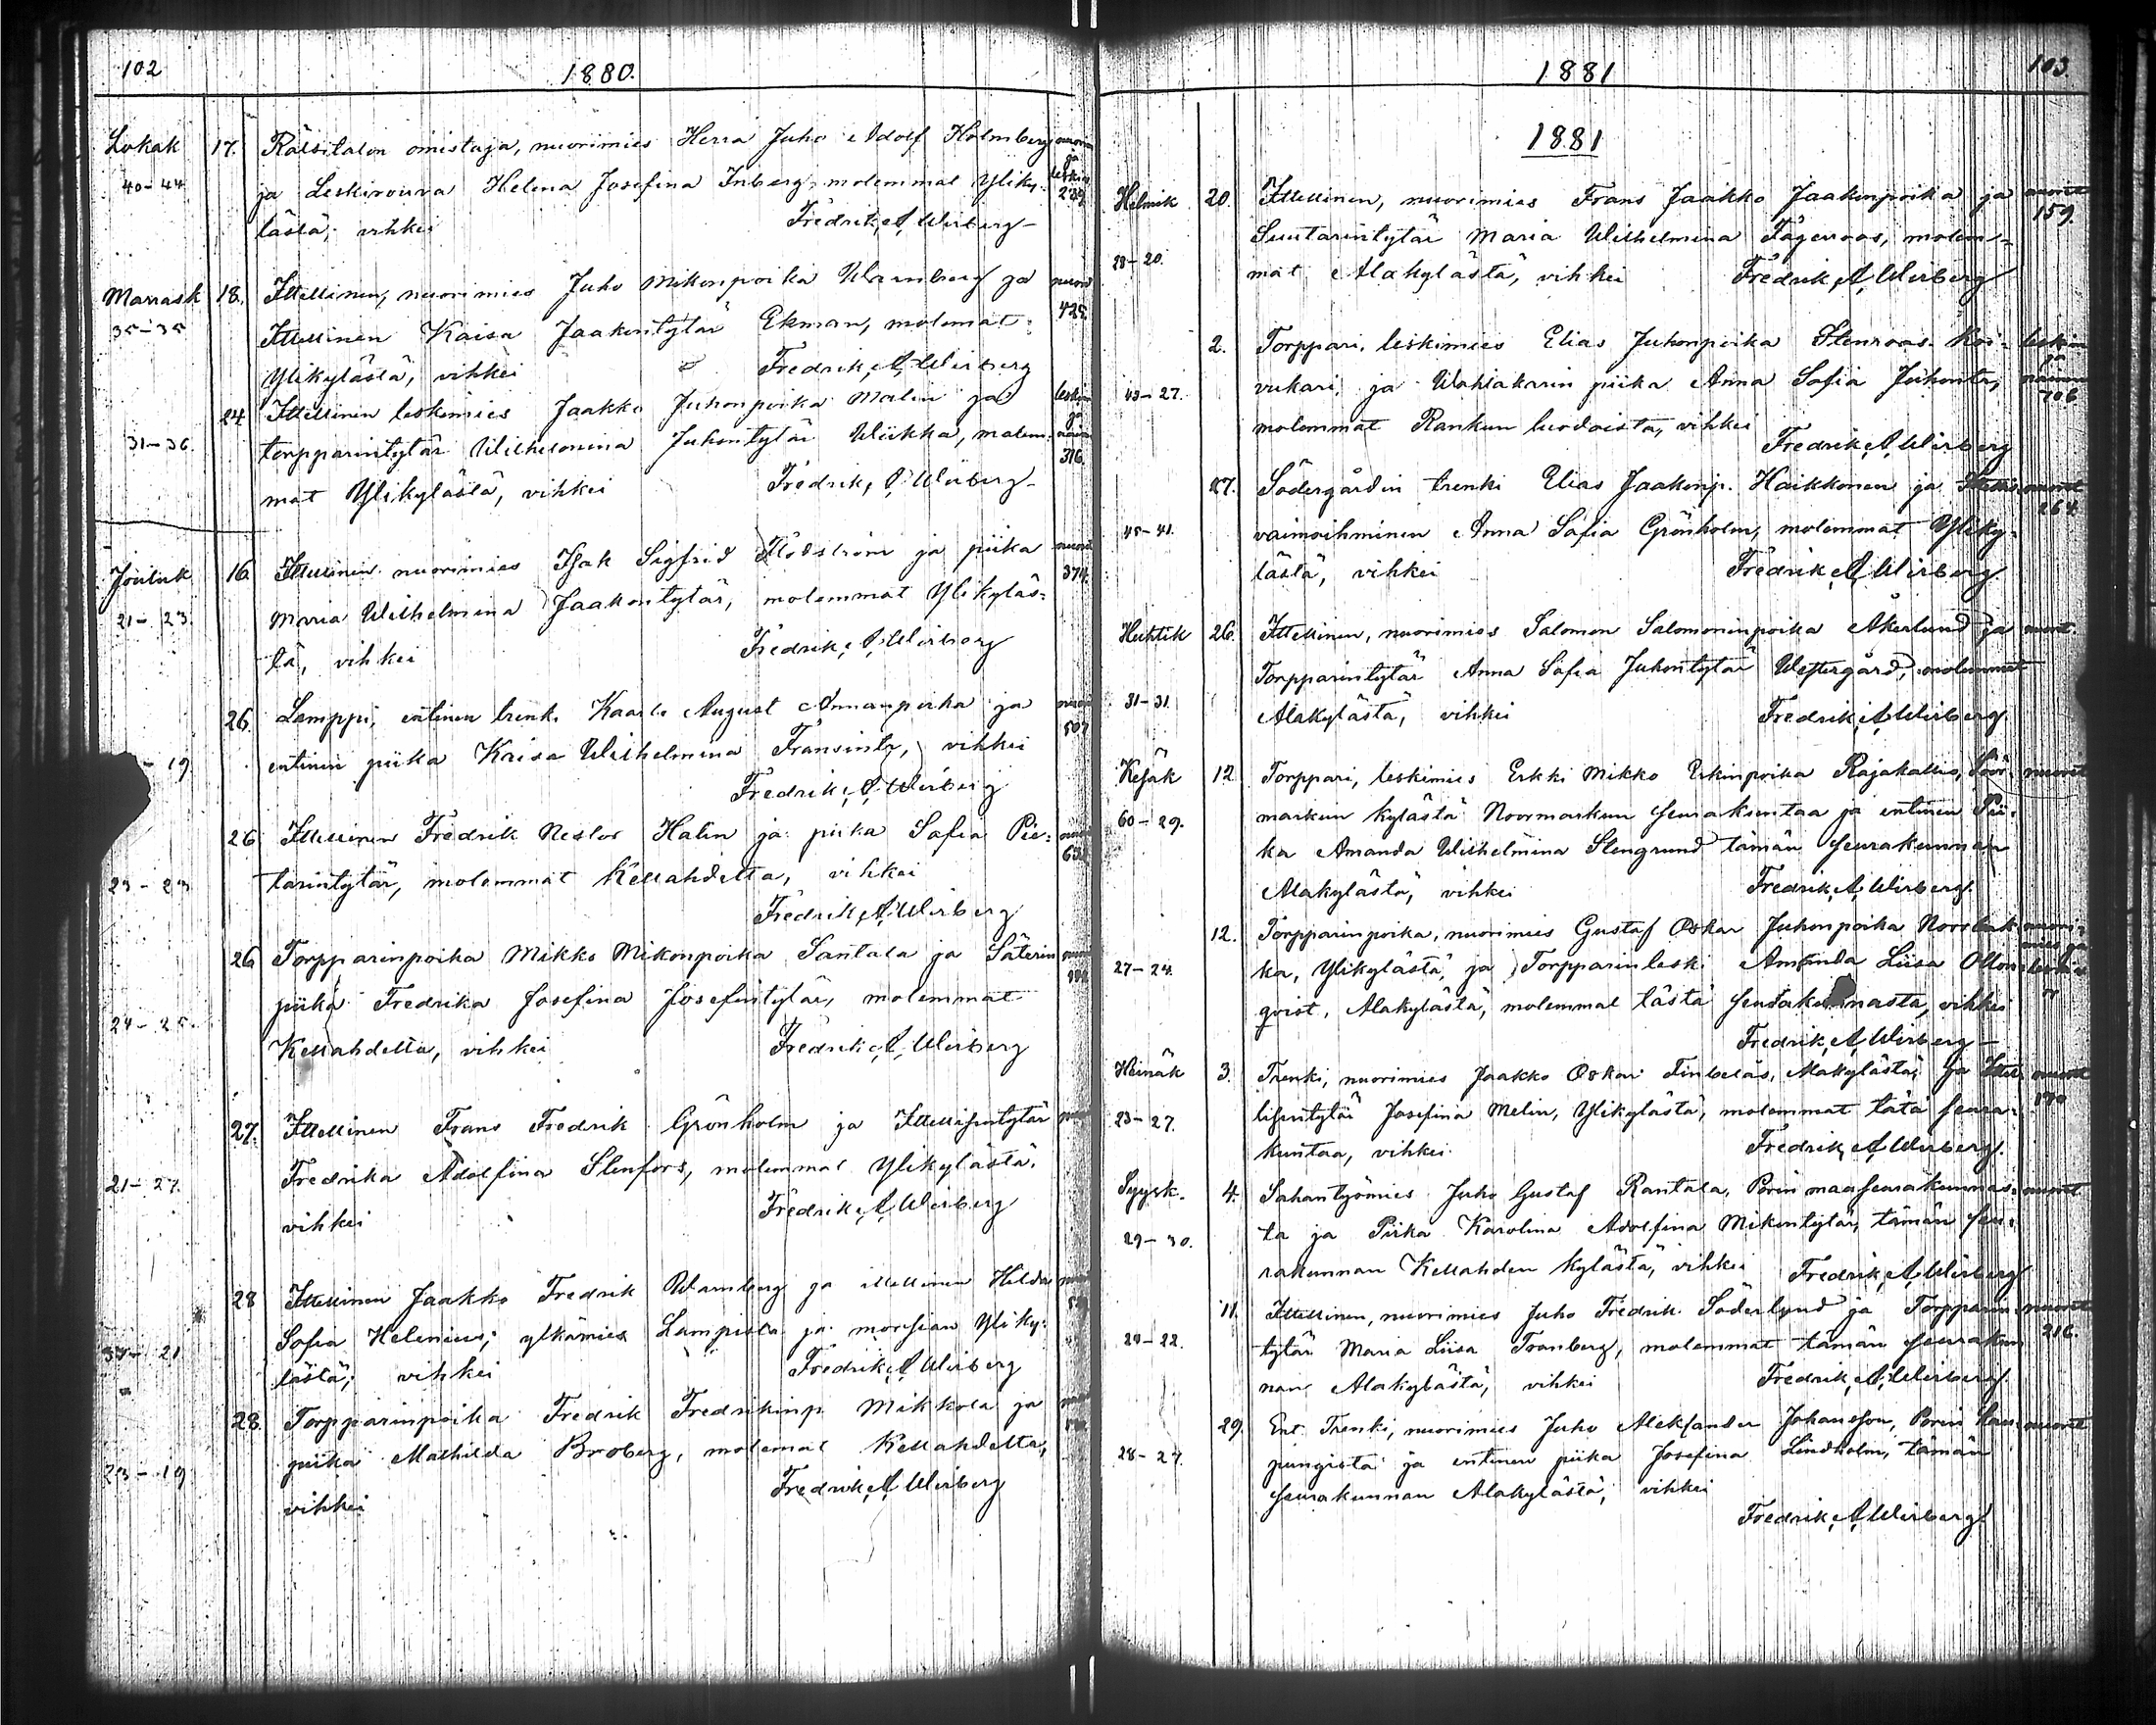 102
1880.
Lokak 17. Rälsitalon omistaja, nuorimies Herra Juho Adolf Holmberg
40-44 ja Leskirouva Helena Josefina Inberg, molemmat Yliky-
lästä, vihkei Fredrik, A, Wirberg
Marrask 18. Ittellinen, nuorimies Juho Mikonpoika Warnberg ja
35-35 Ittellinen Kaisa Jaakontytär Ekman, molemat
Ylikylästä, vihkei Fredrik, A, Wirberg
24 Ittellinen leskimies Jaakko Juhonpoika Malin ja
31-36. torpparintytär Wilhelmina Juhontytär Wiikka, molem- 316.
mat Ylikylästä, vihkei Fredrik, A, Wirberg
Jouluk 16 Ittellinen nuorimies Isak Sigfrid Flodström ja piika
21-23. Maria Wilhelmina Jaakontytär, molemmat Ylikyläs- 374.
tä, vihkei Fredrik, A, Wirberg
26 Lamppi, entinen trenk. Kaarle August Annanpoika ja
-19. entinen piika Kaisa Wilhelmina Fransintr, vihkei
Fredrik, A, Wirberg
26 Ittellinen Fredrik Nestor Halin ja piika Sofia Pie-
23-23 tarintytär, molemmat Kellahdelta, vihkei
Fredrik, A, Wirberg
26 Torpparinpoika Mikko Mikonpoika Santala ja Säterin
piika Fredrika Josefina Josefintytär, molemmat
24-25. Kellahdelta, vihkei Fredrik, A, Wirberg
27. Ittellinen Frans Fredrik Grönholm ja Ittellisentytär
21-27. Fredrika Adolfina Stenfors, molemmat Ylikylästä,
vihkei Fredrik, A, Wirberg
28 Ittellinen Jaakko Fredrik Warnberg ja ittellinen Hilda
Sofia Helenius; ylkämies Lampista ja morsian Yliky-
21 lästä; vihkei Fredrik, A, Wirberg
28. Torpparinpoika Fredrik Fredrikinp. Mikkola ja
23-19 piika Mathilda Broberg, molemat Kellahdelta,
vihkei Fredrik, A, Wirberg
1881
103
1881
Helmik 20. Ittellinen, nuorimies Frans Jaakko Jaakonpoika ja nuoret
Suutarintytär Maria Wilhelmina Fagerroos, molem- 159.
28-20. mat Alakylästä, vihkei Fredrik, A, Wirberg
2. Torppari, leskimies Elias Juhonpoika Stenroos
43-27. ja piika Anna Sofia Juhontr,
molemmat Rankun luodoista, vihkei
Fredrik, A, Wirberg
27. Södergårdin trenki Elias Jaakonp. Haikkonen ja
45-41. vaimoihminen Anna Sofia Grönholm, molemmat Yliky- 264
lästä, vihkei Fredrik, A, Wirberg
Huhtik 26. Ittellinen, nuorimies Salomon Salomoninpoika Åkerlund ja nuoret
Torpparintytär Anna Sofia Juhontytär Westergård, molemmat
31-31 Alakylästä, vihkei Fredrik, A, Wirberg
Kesäk 12 Torppari, leskimies Erkki Mikko Erkinpoika Rajakallio, Söör-
60-29. markun kylästä Noormarkun seurakuntaa ja entinen Pii-
ka Amanda Wilhelmina Stengrund tämän seurakunnan
Alakylästä, vihkei Fredrik, A, Wirberg
12. Torpparinpoika, nuorimies Gustaf Oskar Juhonpoika
27-24. ka, Ylikylästä, ja Torpparinleski Amanda Liisa
qvist, Alakylästä, molemmat tästä seurakunnasta, vihkei
Fredrik, A, Wirberg
Heinäk 3. Trenki, nuorimies Jaakko Oskar Finbelas, Alakylästä, ja Ittel-
23-27. lisentytär Josefina Melin, Ylikylästä, molemmat tätä seura-
kuntaa, vihkei Fredrik, A, Wirberg
Syysk. 4. Sahantyömies Juho Gustaf Rantala, Porin maaseurakunnas- nuoret
29-30. ta ja Piika Karolina Adolfina Mikontytär, tämän seu-
rakunnan Kellahden kylästä, vihkei Fredrik, A, Wirberg
11. Ittellinen, nuorimies Juho Fredrik Söderlund ja Torpparin- nuoret
24-22. tytär Maria Liisa Tranberg, molemmat tämän seurakun- 216.
nan Alakylästä, vihkei Fredrik, A, Wirberg
29. Ent. Trenki, nuorimies Juho Aleksander Johansson, Porin kau- nuoret
28-27. pungista ja entinen piika Josefina Lindholm, tämän
seurakunnan Alakylästä, vihkei
Fredrik, A, Wirberg